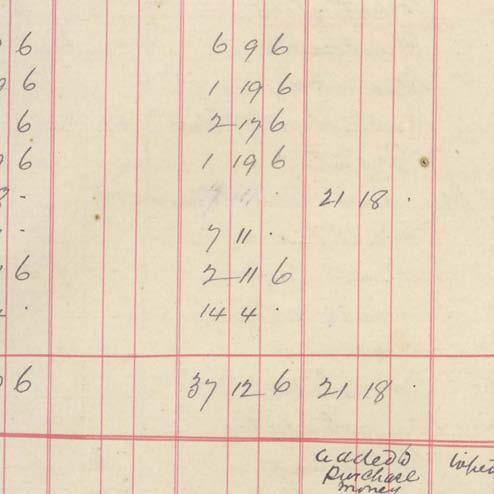 6 6 9 6
6 1 19 6
6 2 17 6
6 1 19 6
8 · 21 18 ·
· 7 11 ·
6 2 11 6
· 14 4 ·
6 37 12 6 21 18 ·
added to
purchase
money